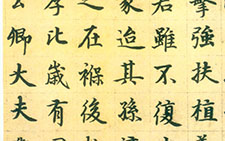 擊強扶植
君雖不復
家迨其孫
之在褓後
孝比歲有
公卿大夫